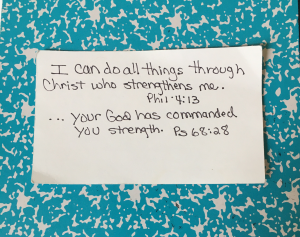 I can do all things through
Christ who strengthens me.
Phil 4:13
... your God has commanded
you strength. Ps 68:28